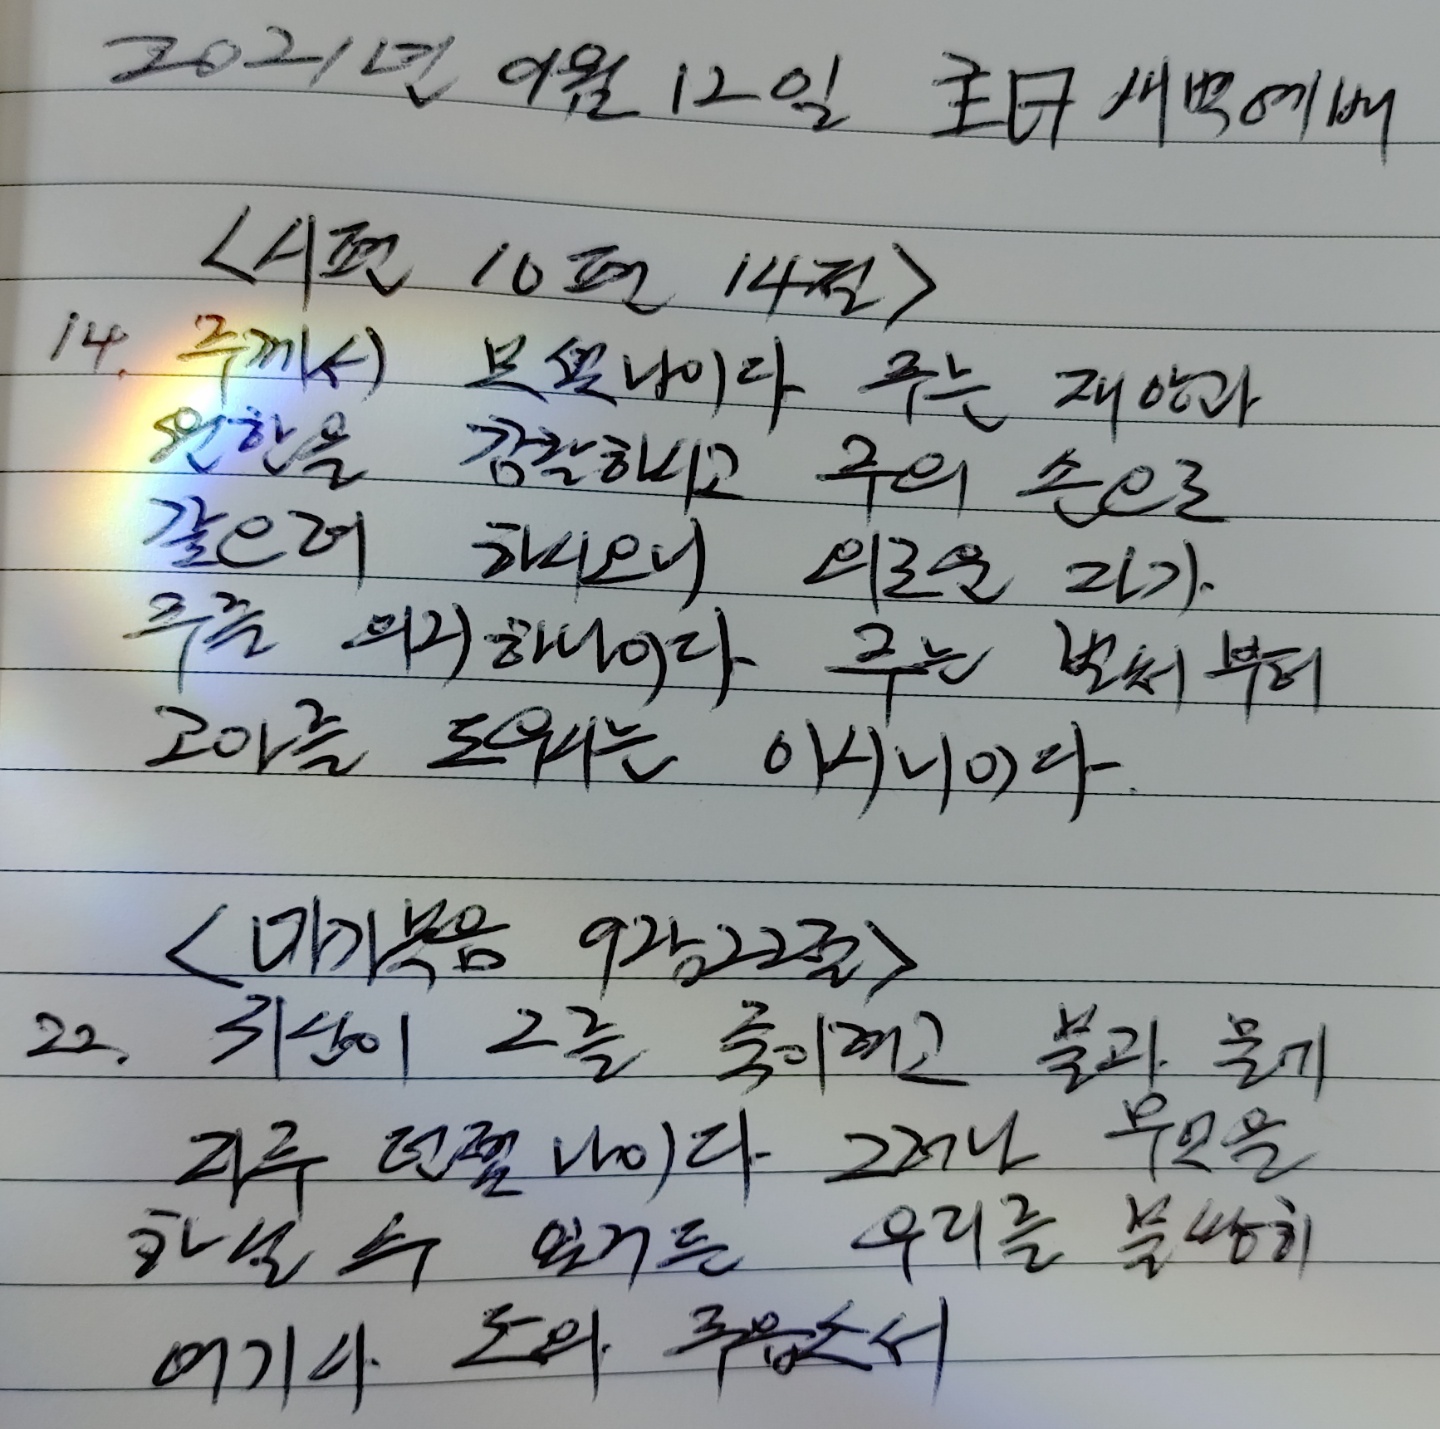 2021년 9월 12일 主日 새벽예배
<시편 10편 14절>
14. 주께서 보셨나이다 주는 재앙과
원한을 감찰하시고 주의 손으로
갚으려 하시오니 외로운 자가
주를 의지하나이다 주는 벌써부터
고아를 도우시는 이시니이다.
<마가복음 9장 22절>
22. 귀신이 그를 죽이려고 불과 물에
자주 던졌나이다 그러나 무엇을
하실 수 있거든 우리를 불쌍히
여기사 도와 주옵소서